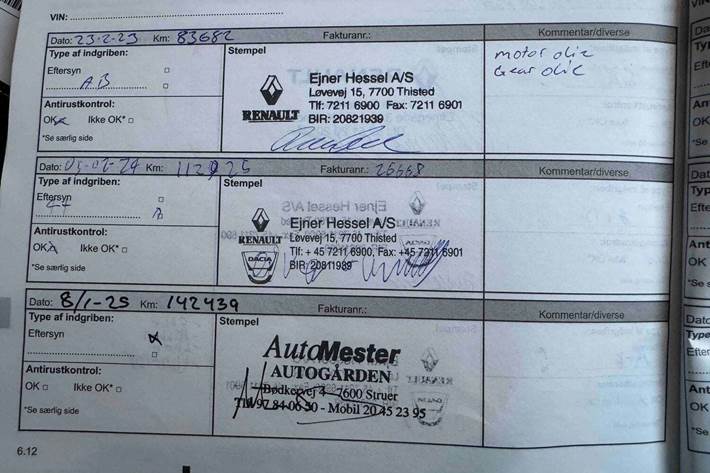 VIN:
Dato: 23-2-23 Km: 83682 Fakturanr.: Kommentar/diverse
Type af indgriben: Stempel motor olie
Eftersyn Gear olie
AB
Ejner Hessel A/S
Løvevej 15, 7700 Thisted
Tlf: 7211 6900 Fax: 7211 6901
BIR: 20821939
RENAULT
Antirustkontrol:
OK Ikke OK*
*Se særlig side
Dato: Km: Fakturanr.: Kommentar/diverse
Type af indgriben: Stempel
Eftersyn
A
Ejner Hessel A/S
Løvevej 15, 7700 Thisted
Tlf: + 45 7211 6900, Fax: +45 7211 6901
RENAULT
DACIA
Antirustkontrol:
OK Ikke OK*
*Se særlig side
Dato: 8/1-25 Km: 142439 Fakturanr.: Kommentar/diverse
Type af indgriben: Stempel
Eftersyn
AutoMester
AUTOGÅRDEN
7600 Struer
Mobil 20 45 23 95
Antirustkontrol:
OK Ikke OK*
*Se særlig side
6.12